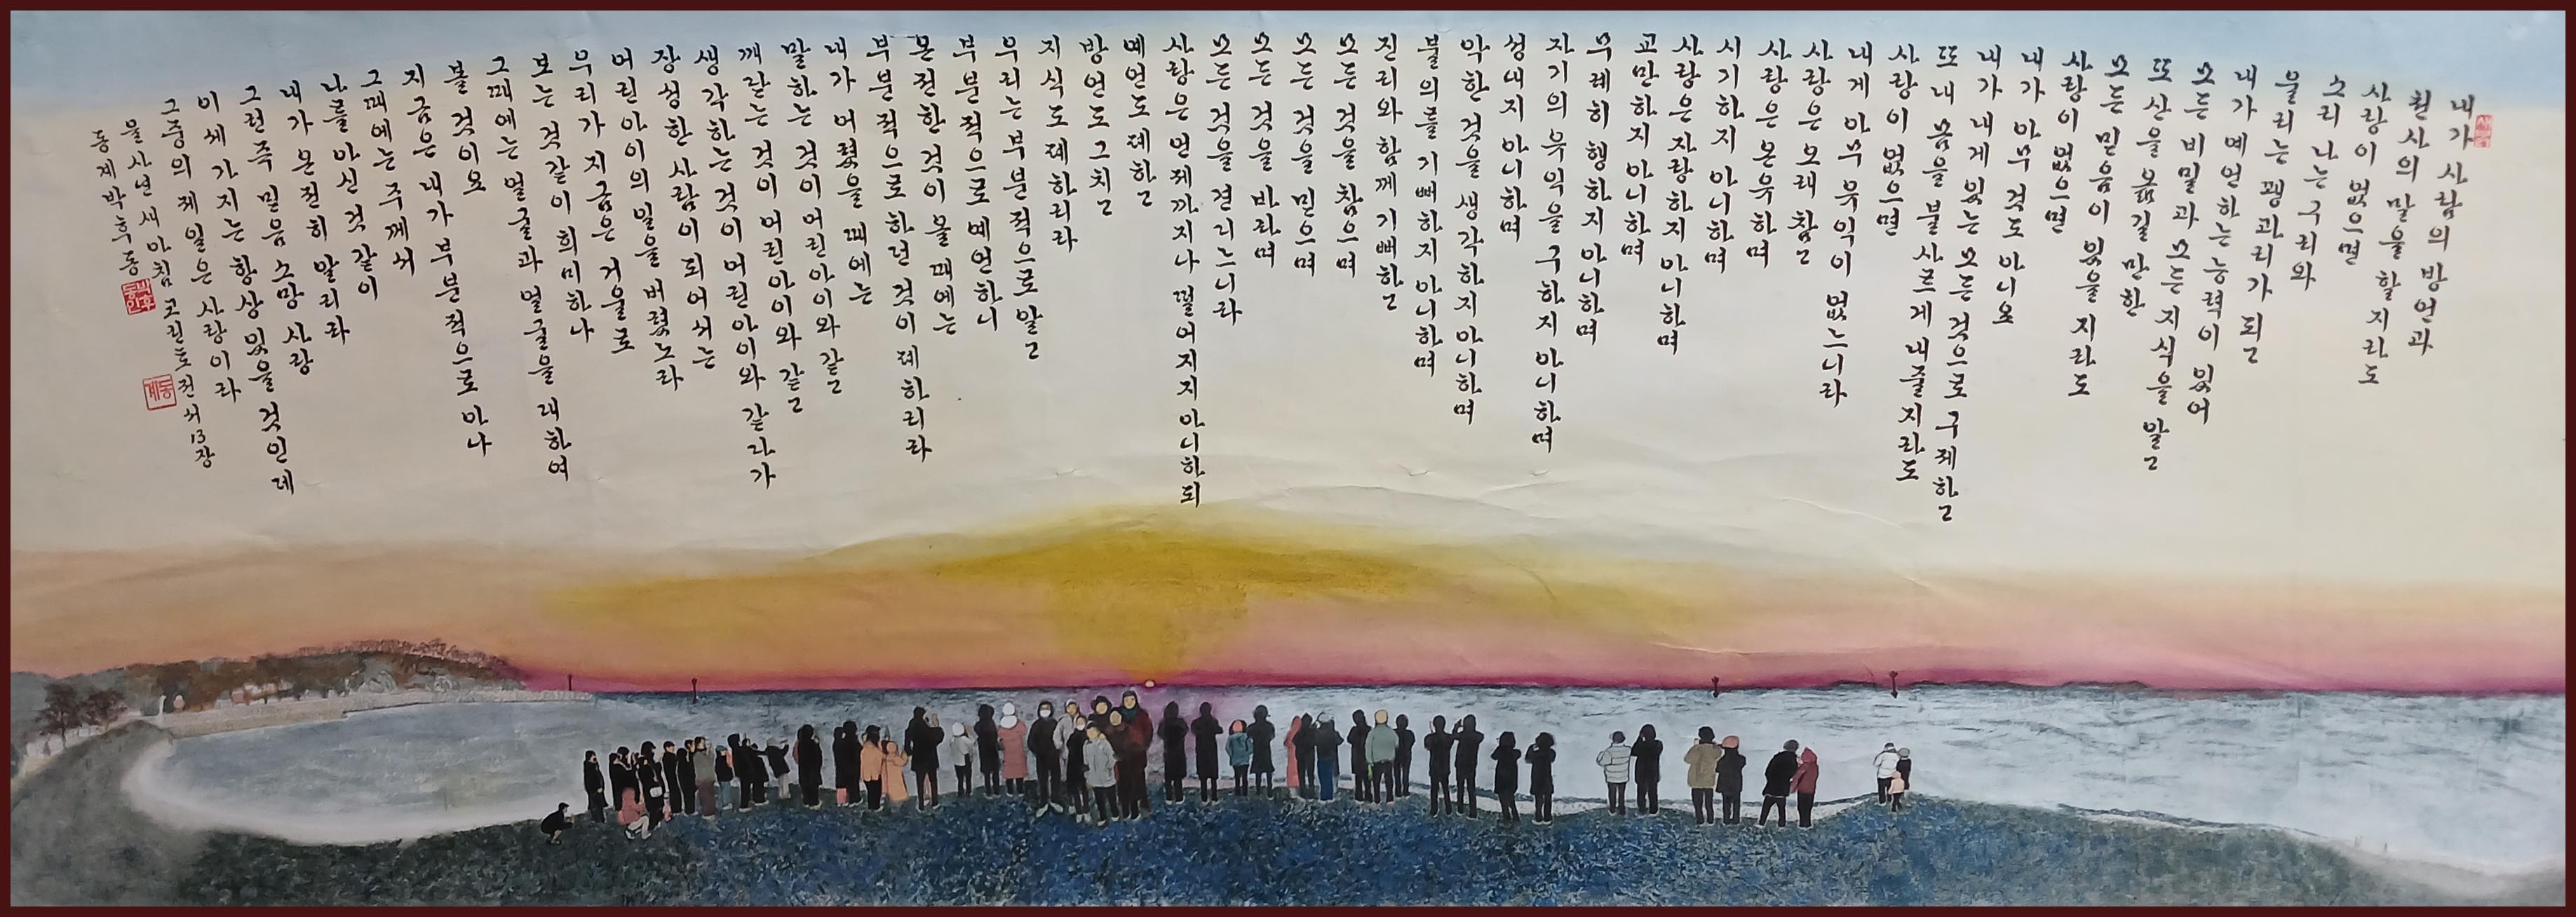 내가 사람의 방언과
천사의 말을 할지라도
사랑이 없으면
소리 나는 구리와
울리는 꽹과리가 되고
내가 예언하는 능력이 있어
모든 비밀과 모든 지식을 알고
또 산을 옮길 만한
모든 믿음이 있을지라도
사랑이 없으면
내가 아무 것도 아니요
내가 내게 있는 모든 것으로 구제하고
또 내 몸을 불사르게 내줄지라도
사랑이 없으면
내게 아무 유익이 없느니라
사랑은 오래 참고
사랑은 온유하며
시기하지 아니하며
사랑은 자랑하지 아니하며
교만하지 아니하며
무례히 행하지 아니하며
자기의 유익을 구하지 아니하며
성내지 아니하며
악한 것을 생각하지 아니하며
불의를 기뻐하지 아니하며
진리와 함께 기뻐하고
모든 것을 참으며
모든 것을 믿으며
모든 것을 바라며
모든 것을 견디느니라
사랑은 언제까지나 떨어지지 아니하되
예언도 폐하고
방언도 그치고
지식도 폐하리라
우리는 부분적으로 알고
부분적으로 예언하니
온전한 것이 올 때에는
부분적으로 하던 것이 폐하리라
내가 어렸을 때에는
말하는 것이 어린아이와 같고
깨닫는 것이 어린아이와 같고
생각하는 것이 어린아이와 같다가
장성한 사람이 되어서는
어린아이의 일을 버렸노라
우리가 지금은 거울로
보는 것 같이 희미하나
그 때에는 얼굴과 얼굴을 대하여
볼 것이요
지금은 내가 부분적으로 아나
그 때에는 주께서
나를 아신 것 같이
내가 온전히 알리라
그런즉 믿음 소망 사랑
이 세 가지는 항상 있을 것인데
그 중의 제일은 사랑이라
을사년 새아침 고린도전서 13장
동계 박후동
박후동인
동계